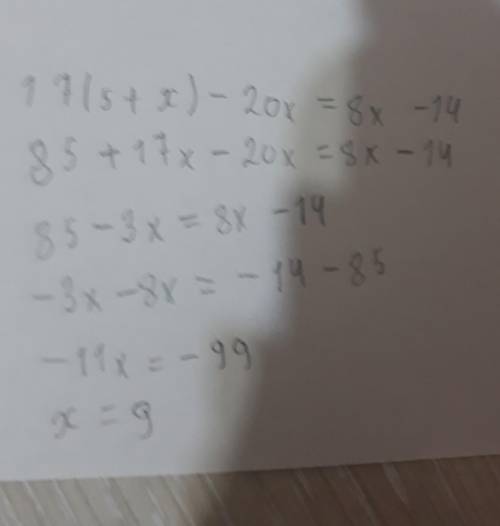 17(5+x)-20x=8x-14
85+17x-20x=8x-14
85-3x=8x-14
-3x-8x=-14-85
-11x=-99
x=9